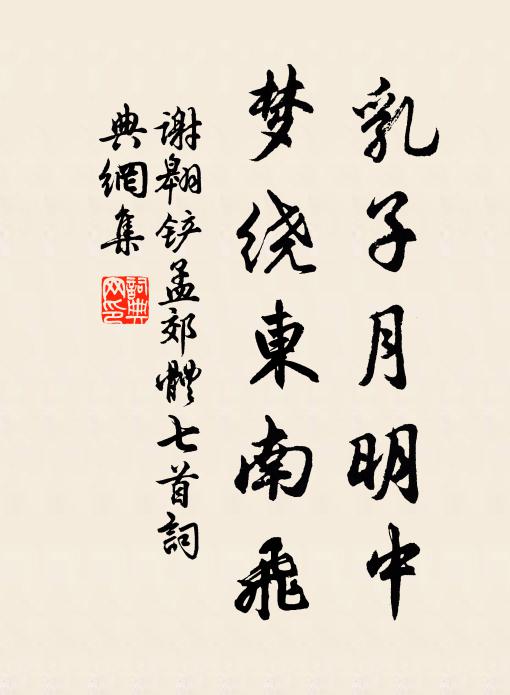 乳子月明中
梦绕東南飛
谢翱铲孟郊體七首詞
典網集
詞典
网印